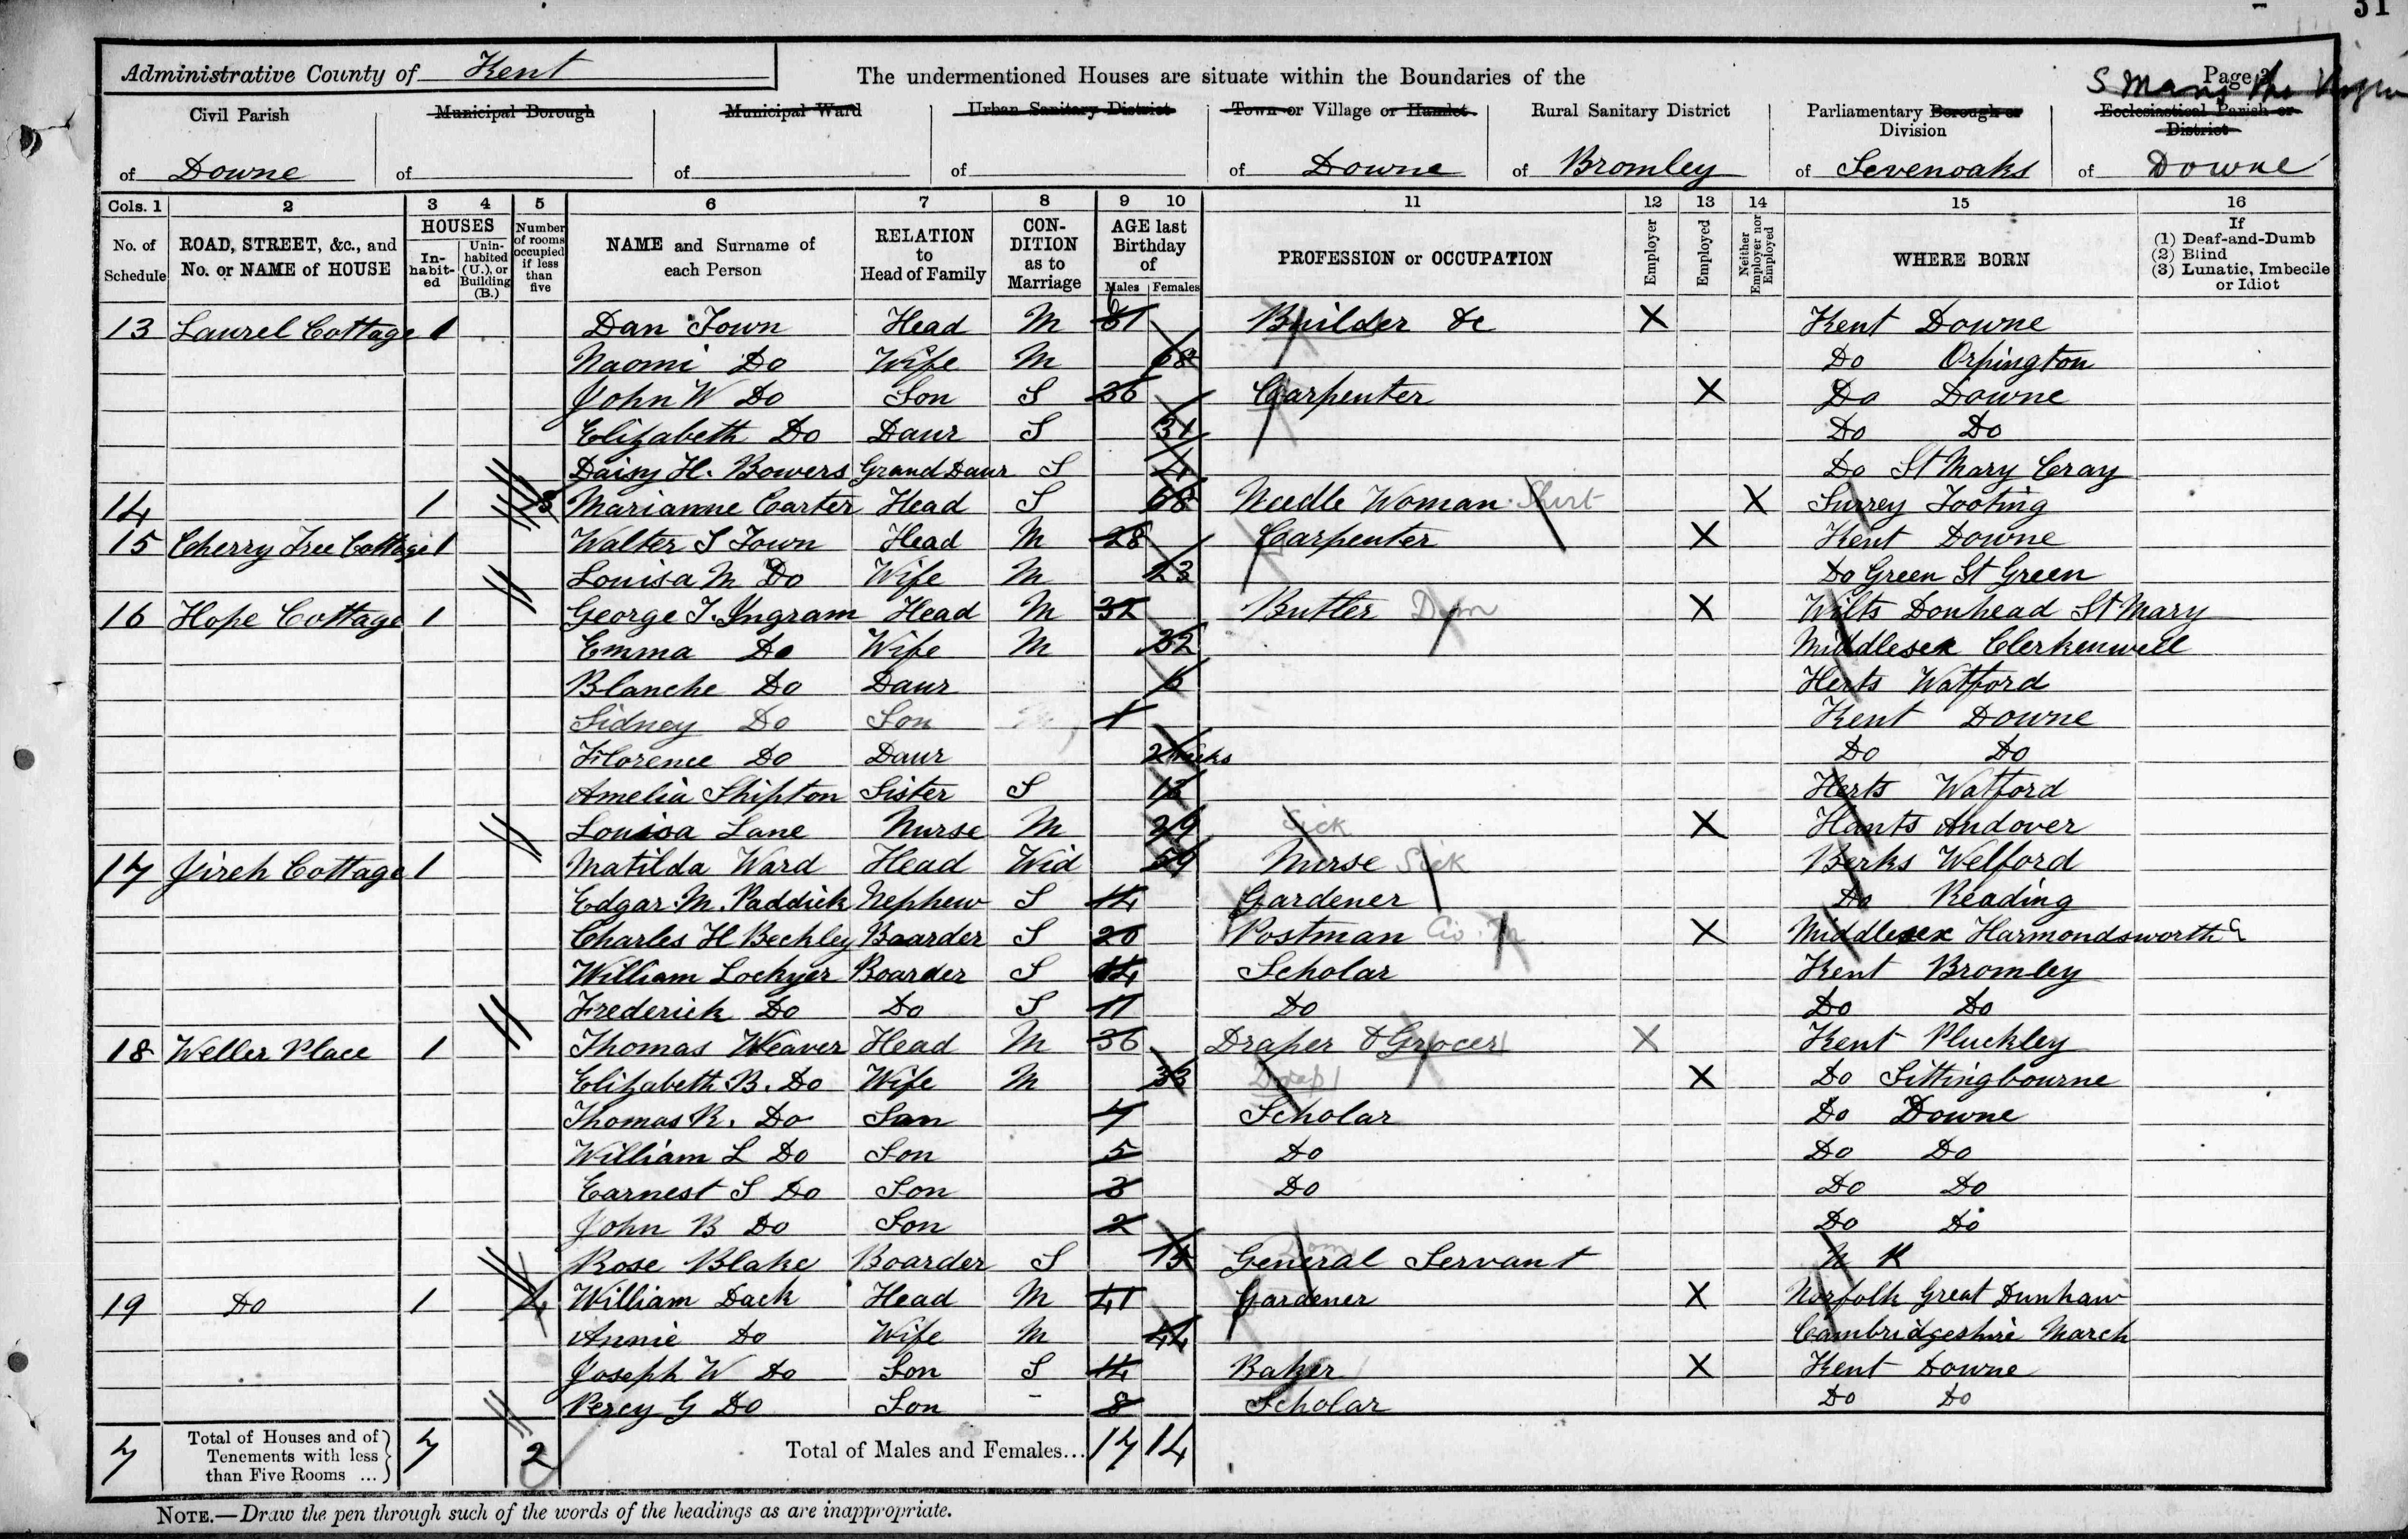 31
Administrative County of Kent The undermentioned Houses are situate within the Boundaries of the Page
S Mary the Virgin
Civil Parish Municipal Borough Municipal Ward Urban Sanitary District Town or Village or Hamlet Rural Sanitary District Parliamentary Borough or Division Ecclesiastical Parish or District
of Downe of of of of Downe of Bromley of Sevenoaks of Downe
Cols. 1 2 3 4 5 6 7 8 9 10 11 12 13 14 15 16
No. of Schedule ROAD, STREET, &c., and No. or NAME of HOUSE HOUSES Inhabited Uninhabited (U.), or Building (B.) Number of rooms occupied if less than five NAME and Surname of each Person RELATION to Head of Family CONDITION as to Marriage AGE last Birthday of Males Females PROFESSION or OCCUPATION Employer Employed Neither Employer nor Employed WHERE BORN If (1) Deaf-and-Dumb (2) Blind (3) Lunatic, Imbecile or Idiot
13 Laurel Cottage 1 Dan Town Head M 61 Builder &c X Kent Downe
Naomi Do Wife M 68 Do Orpington
John W Do Son S 36 Carpenter X Do Downe
Elizabeth Do Daur S 31 Do Do
Daisy H. Bowers Grand Daur S 4 Do St Mary Cray
14 1 3 Marianne Carter Head S 68 Needle Woman Shirt X Surrey Tooting
15 Cherry Tree Cottage 1 Walter S Town Head M 28 Carpenter X Kent Downe
Louisa M Do Wife M 23 Do Green St Green
16 Hope Cottage 1 George T. Yngram Head M 32 Butler Dom X Wilts Donhead St Mary
Emma Do Wife M 32 Middlesex Clerkenwell
Blanche Do Daur 6 Herts Watford
Sidney Do Son 1 Kent Downe
Florence Do Daur 2 Weeks Do Do
Amelia Shipton Sister S 13 Herts Watford
Louisa Lane Nurse M 29 Sick X Hants Andover
17 Jireh Cottage 1 Matilda Ward Head Wid 59 Nurse Sick Berks Welford
Edgar M. Paddick Nephew S 14 Gardener Do Reading
Charles H Beckley Boarder S 20 Postman X Middlesex Harmondsworth
William Lockyer Boarder S 14 Scholar Kent Bromley
Frederick Do Do S 11 Do Do Do
18 Weller Place 1 Thomas Weaver Head M 36 Draper & Grocer X Kent Pluckley
Elizabeth B. Do Wife M 33 Drap X Do Sittingbourne
Thomas R. Do Son 7 Scholar Do Downe
William L Do Son 5 Do Do Do
Earnest S Do Son 3 Do Do Do
John B Do Son 2 Do Do
Rose Blake Boarder S 15 General Servant Dom N K
19 Do 1 4 William Dack Head M 41 Gardener X Norfolk Great Dunham
Annie Do Wife M 44 Cambridgeshire March
Joseph W Do Son S 14 Baker X Kent Downe
Percy G Do Son - 8 Scholar Do Do
7 Total of Houses and of Tenements with less than Five Rooms ... 7 2 Total of Males and Females... 17 14
NOTE.—Draw the pen through such of the words of the headings as are inappropriate.